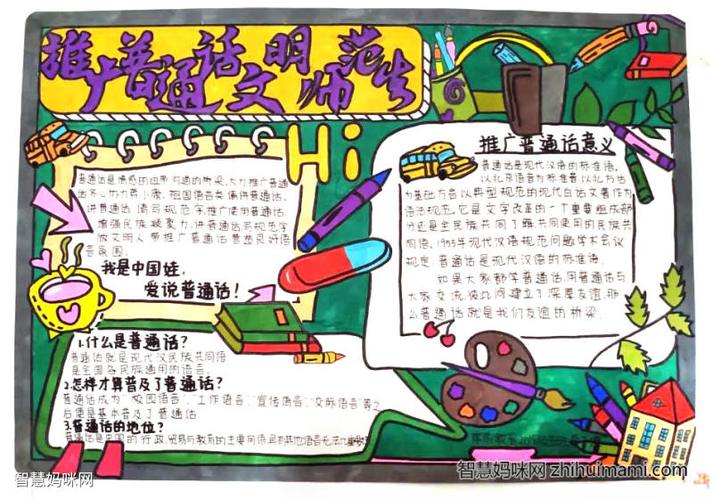 推广普通话 文明师范生
Hi
普通话是情感的纽带 沟通的桥梁,大力推广普通
讲普通话 写规范字,推广使用普通话
增强民族凝聚力,讲普通话写规范字
做文明人 推广普通话 营造良好语
言氛围
我是中国娃,
爱说普通话!
推广普通话意义
普通话是现代汉语的标准语.
以北京语音为标准音以北方话
为基础方言以典型规范的现代白话文著作为
语法规范,它是文字改革的一个重要组成部
分还是全民族共同了解共同使用的民族共
同语,1955年现代汉语规范问题学术会议
规定 普通话是现代汉语的标准语.
如果大家都学普通话,用普通话与
大家交流,彼此间建立了深厚友谊,那
么普通话就是我们友谊的桥梁.
1.什么是普通话?
普通话就是现代汉民族共同语
是全国各民族通用的语言.
2.怎样才算普及了普通话?
普通话成为"校园语言"."工作语言"."宣传语言"."交际语言"等之
后便是基本普及了普通话
3.普通话的地位?
普通话是中国的行政.贸易与教育的主要用语
智慧妈咪网
智慧妈咪网 zhihuimami.com